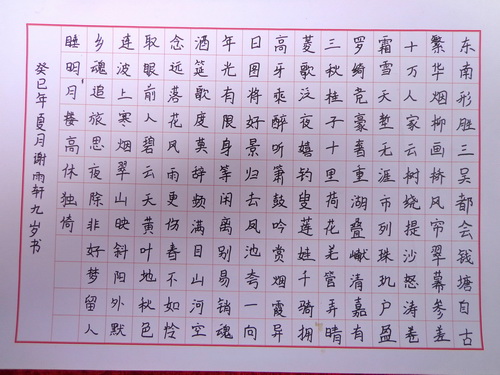 东南形胜三吴都会钱塘自古
繁华烟柳画桥风帘翠幕参差
十万人家云树绕提沙怒涛卷
霜雪天堑无涯市列珠玑户盈
罗绮竞豪奢重湖叠巘清嘉有
三秋桂子十里荷花羌管弄晴
菱歌泛夜嬉钓叟莲娃千骑拥
高牙乘醉听箫鼓吟赏烟霞异
日图将好景归去凤池夸一向
年光有限身等闲离别易销魂
酒筵歌度莫辞频满目山河空
念远落花风雨更伤春不如怜
取眼前人碧云天黄叶地秋色
连波上寒烟翠山映斜阳外默
乡魂追旅思夜除非好梦留人
睡明月楼高休独倚
癸巳年夏月谢雨轩九岁书